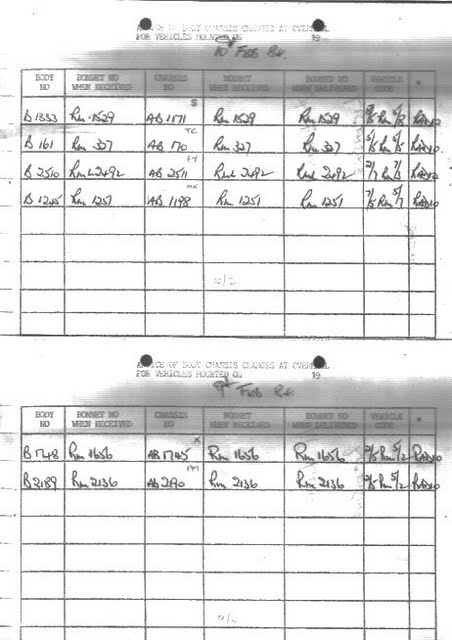 ADVICE OF BODY CHASSIS CHANGES AT OVERHAUL
FOR VEHICLES MOUNTED ON 19
10 FEB
BODY NO BONNET NO WHEN RECEIVED CHASSIS NO BONNET WHEN RECEIVED BONNET NO WHEN DELIVERED VEHICLE CODE *
S
B 1333 Rm 1529 AB 1171 Rm 1529 Rm 1529 RADIO
TC
B 161 Rm 327 AB 170 Rm 327 Rm 327 RADIO
B 2510 RmL 2492 AB 2511 RmL 2492 RmL 2492 RADIO
B 1245 Rm 1251 AB 1198 Rm 1251 Rm 1251 RADIO
10/2
ADVICE OF BODY CHASSIS CHANGES AT OVERHAUL
FOR VEHICLES MOUNTED ON 19
9 FEB
BODY NO BONNET NO WHEN RECEIVED CHASSIS NO BONNET WHEN RECEIVED BONNET NO WHEN DELIVERED VEHICLE CODE *
B 1748 Rm 1656 AB 1745 Rm 1656 Rm 1656 RADIO
PM
B 2189 Rm 2136 Rm 2136 Rm 2136 RADIO